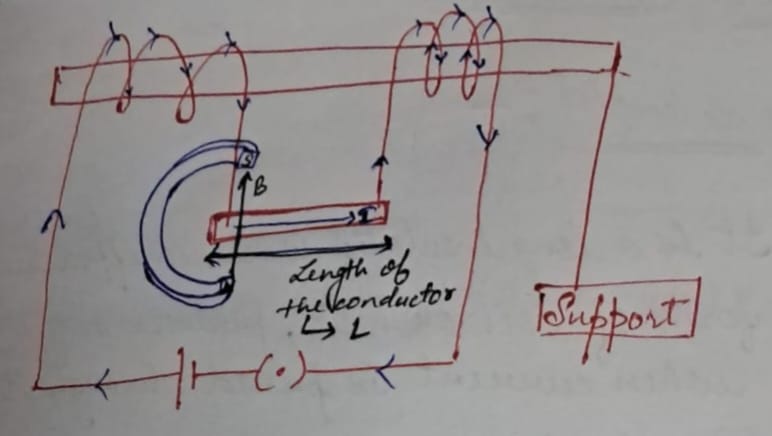 S
B
I
N
Length of
the conductor
↳ L
Support